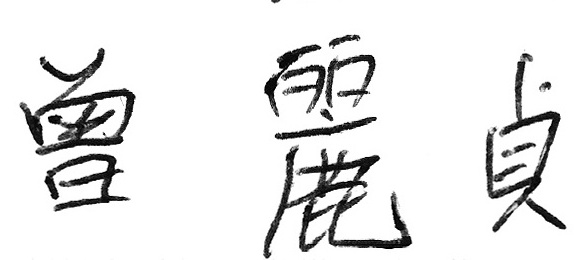 曾麗貞